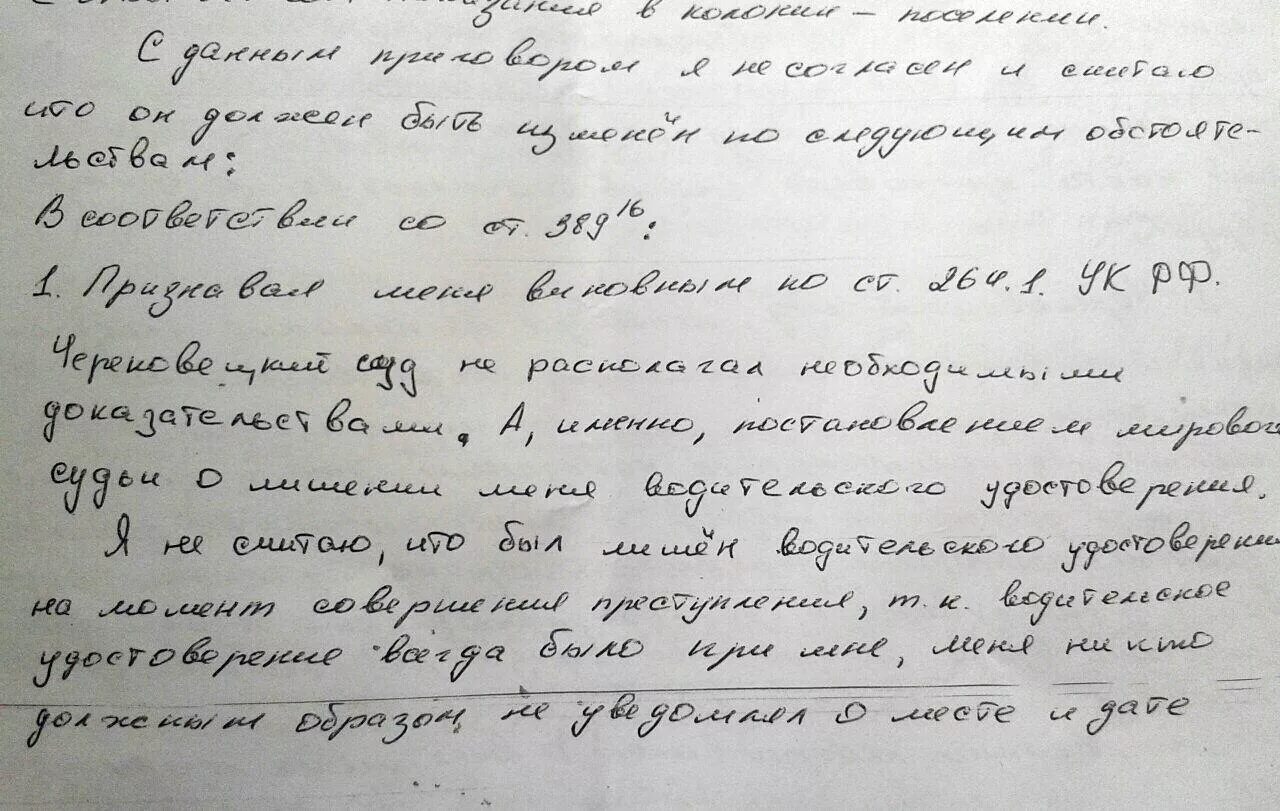 наказания в колонии – поселении.
С данным приговором я не согласен и считаю
что он должен быть изменён по следующим обстояте-
льствам:
В соответствии со ст. 389¹⁶:
1. Признавая меня виновным по ст. 264.1. УК РФ.
Череповецкий суд не располагал необходимыми
доказательствами. А, именно, постановлением мирового
судьи о лишении меня водительского удостоверения.
Я не считаю, что был лишён водительского удостоверения
на момент совершения преступления, т.к. водительское
удостоверение всегда было при мне, меня никто
должным образом не уведомлял о месте и дате